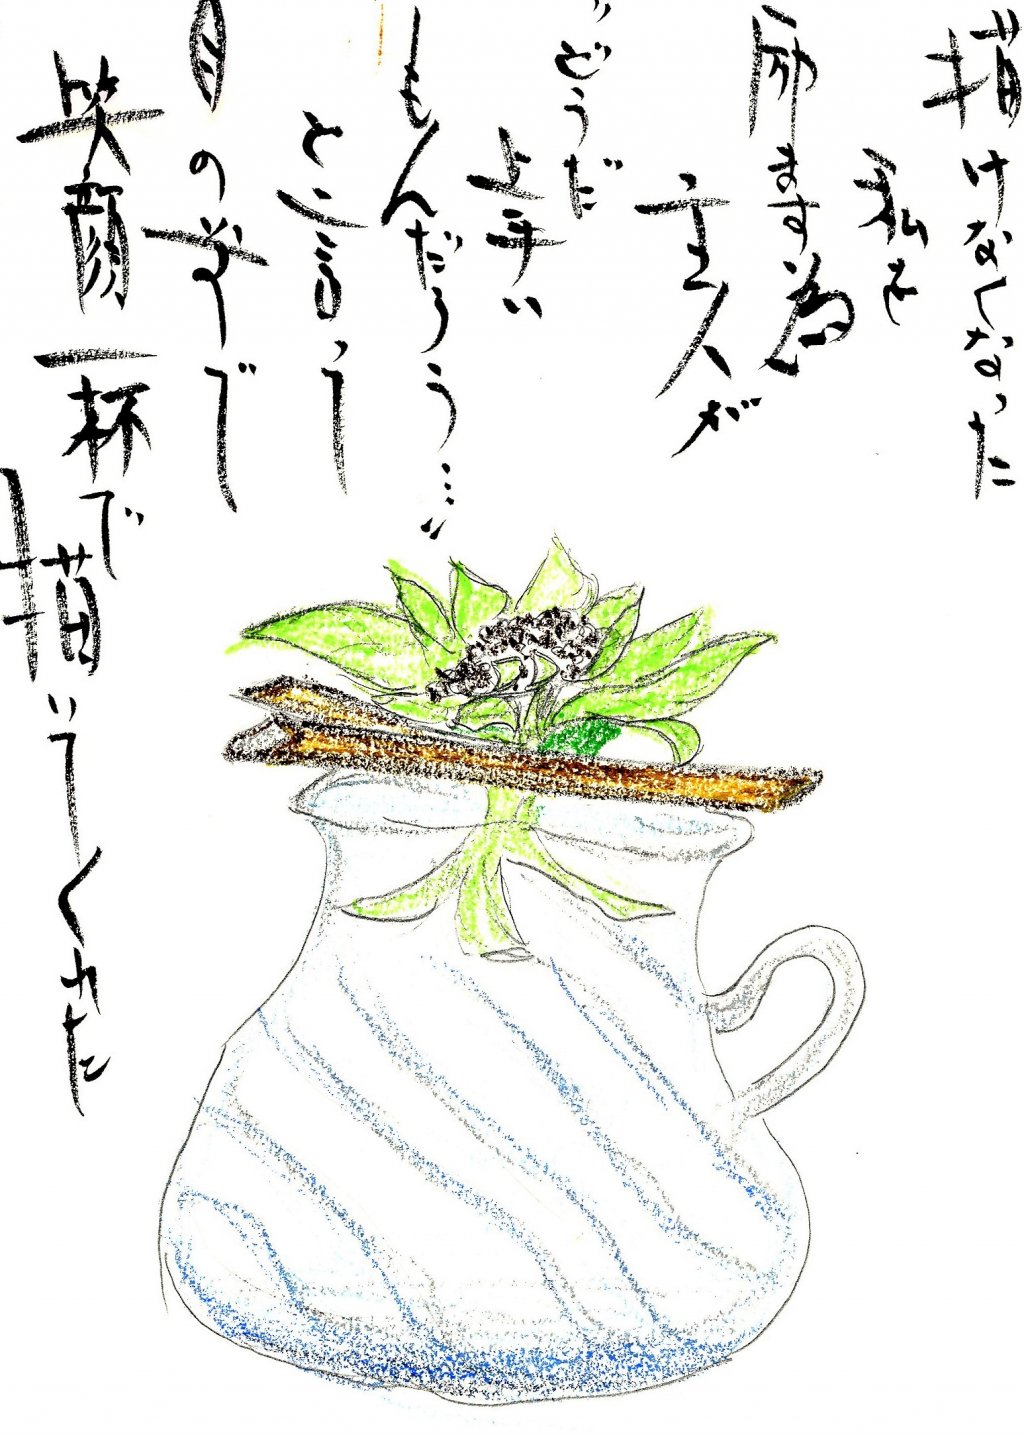 描けなくなった
私を
励ます為
主人が
"どうだ
上手い
もんだろう…"
と言って
目の前で
笑顔一杯で
描いてくれた